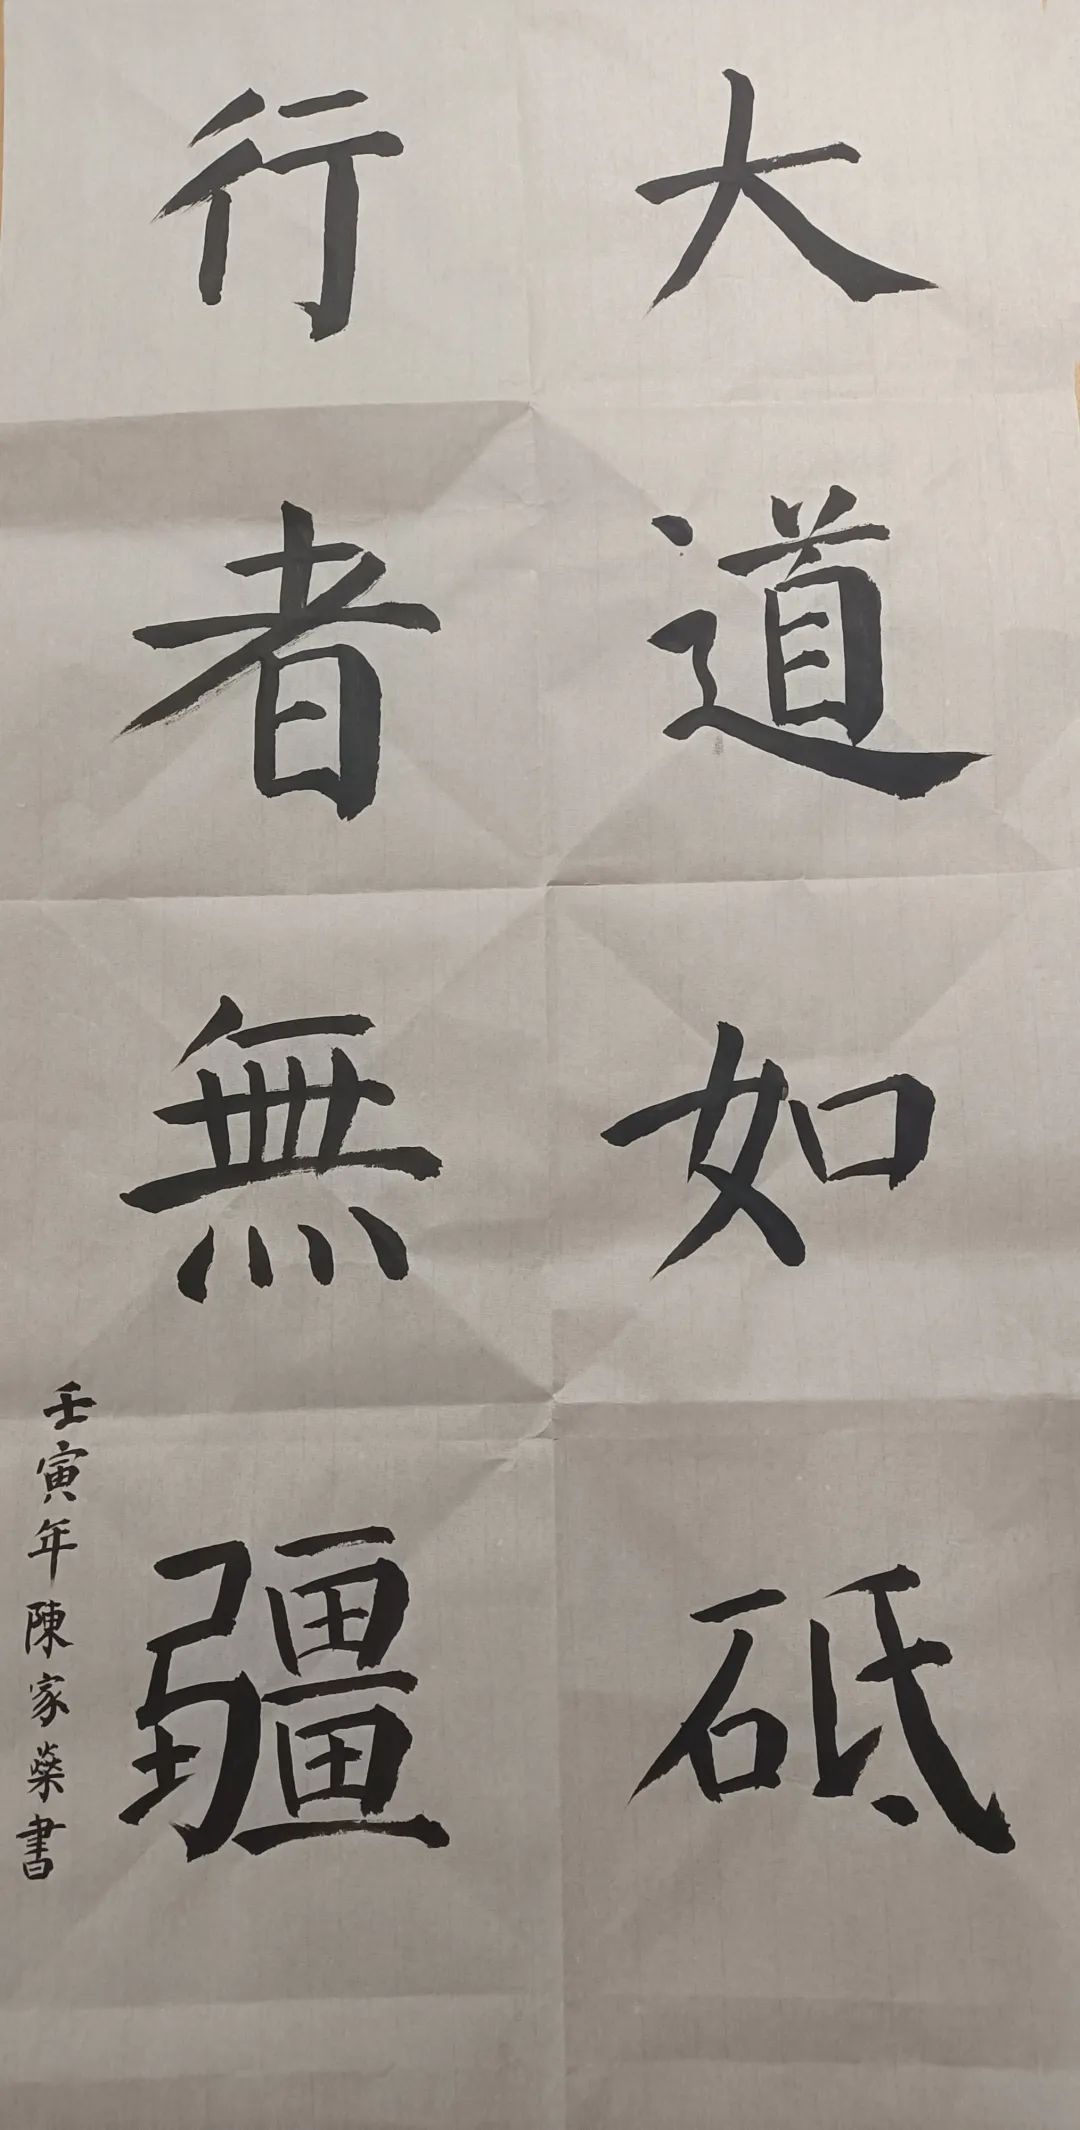 大道如砥
行者無疆
壬寅年陳家榮書